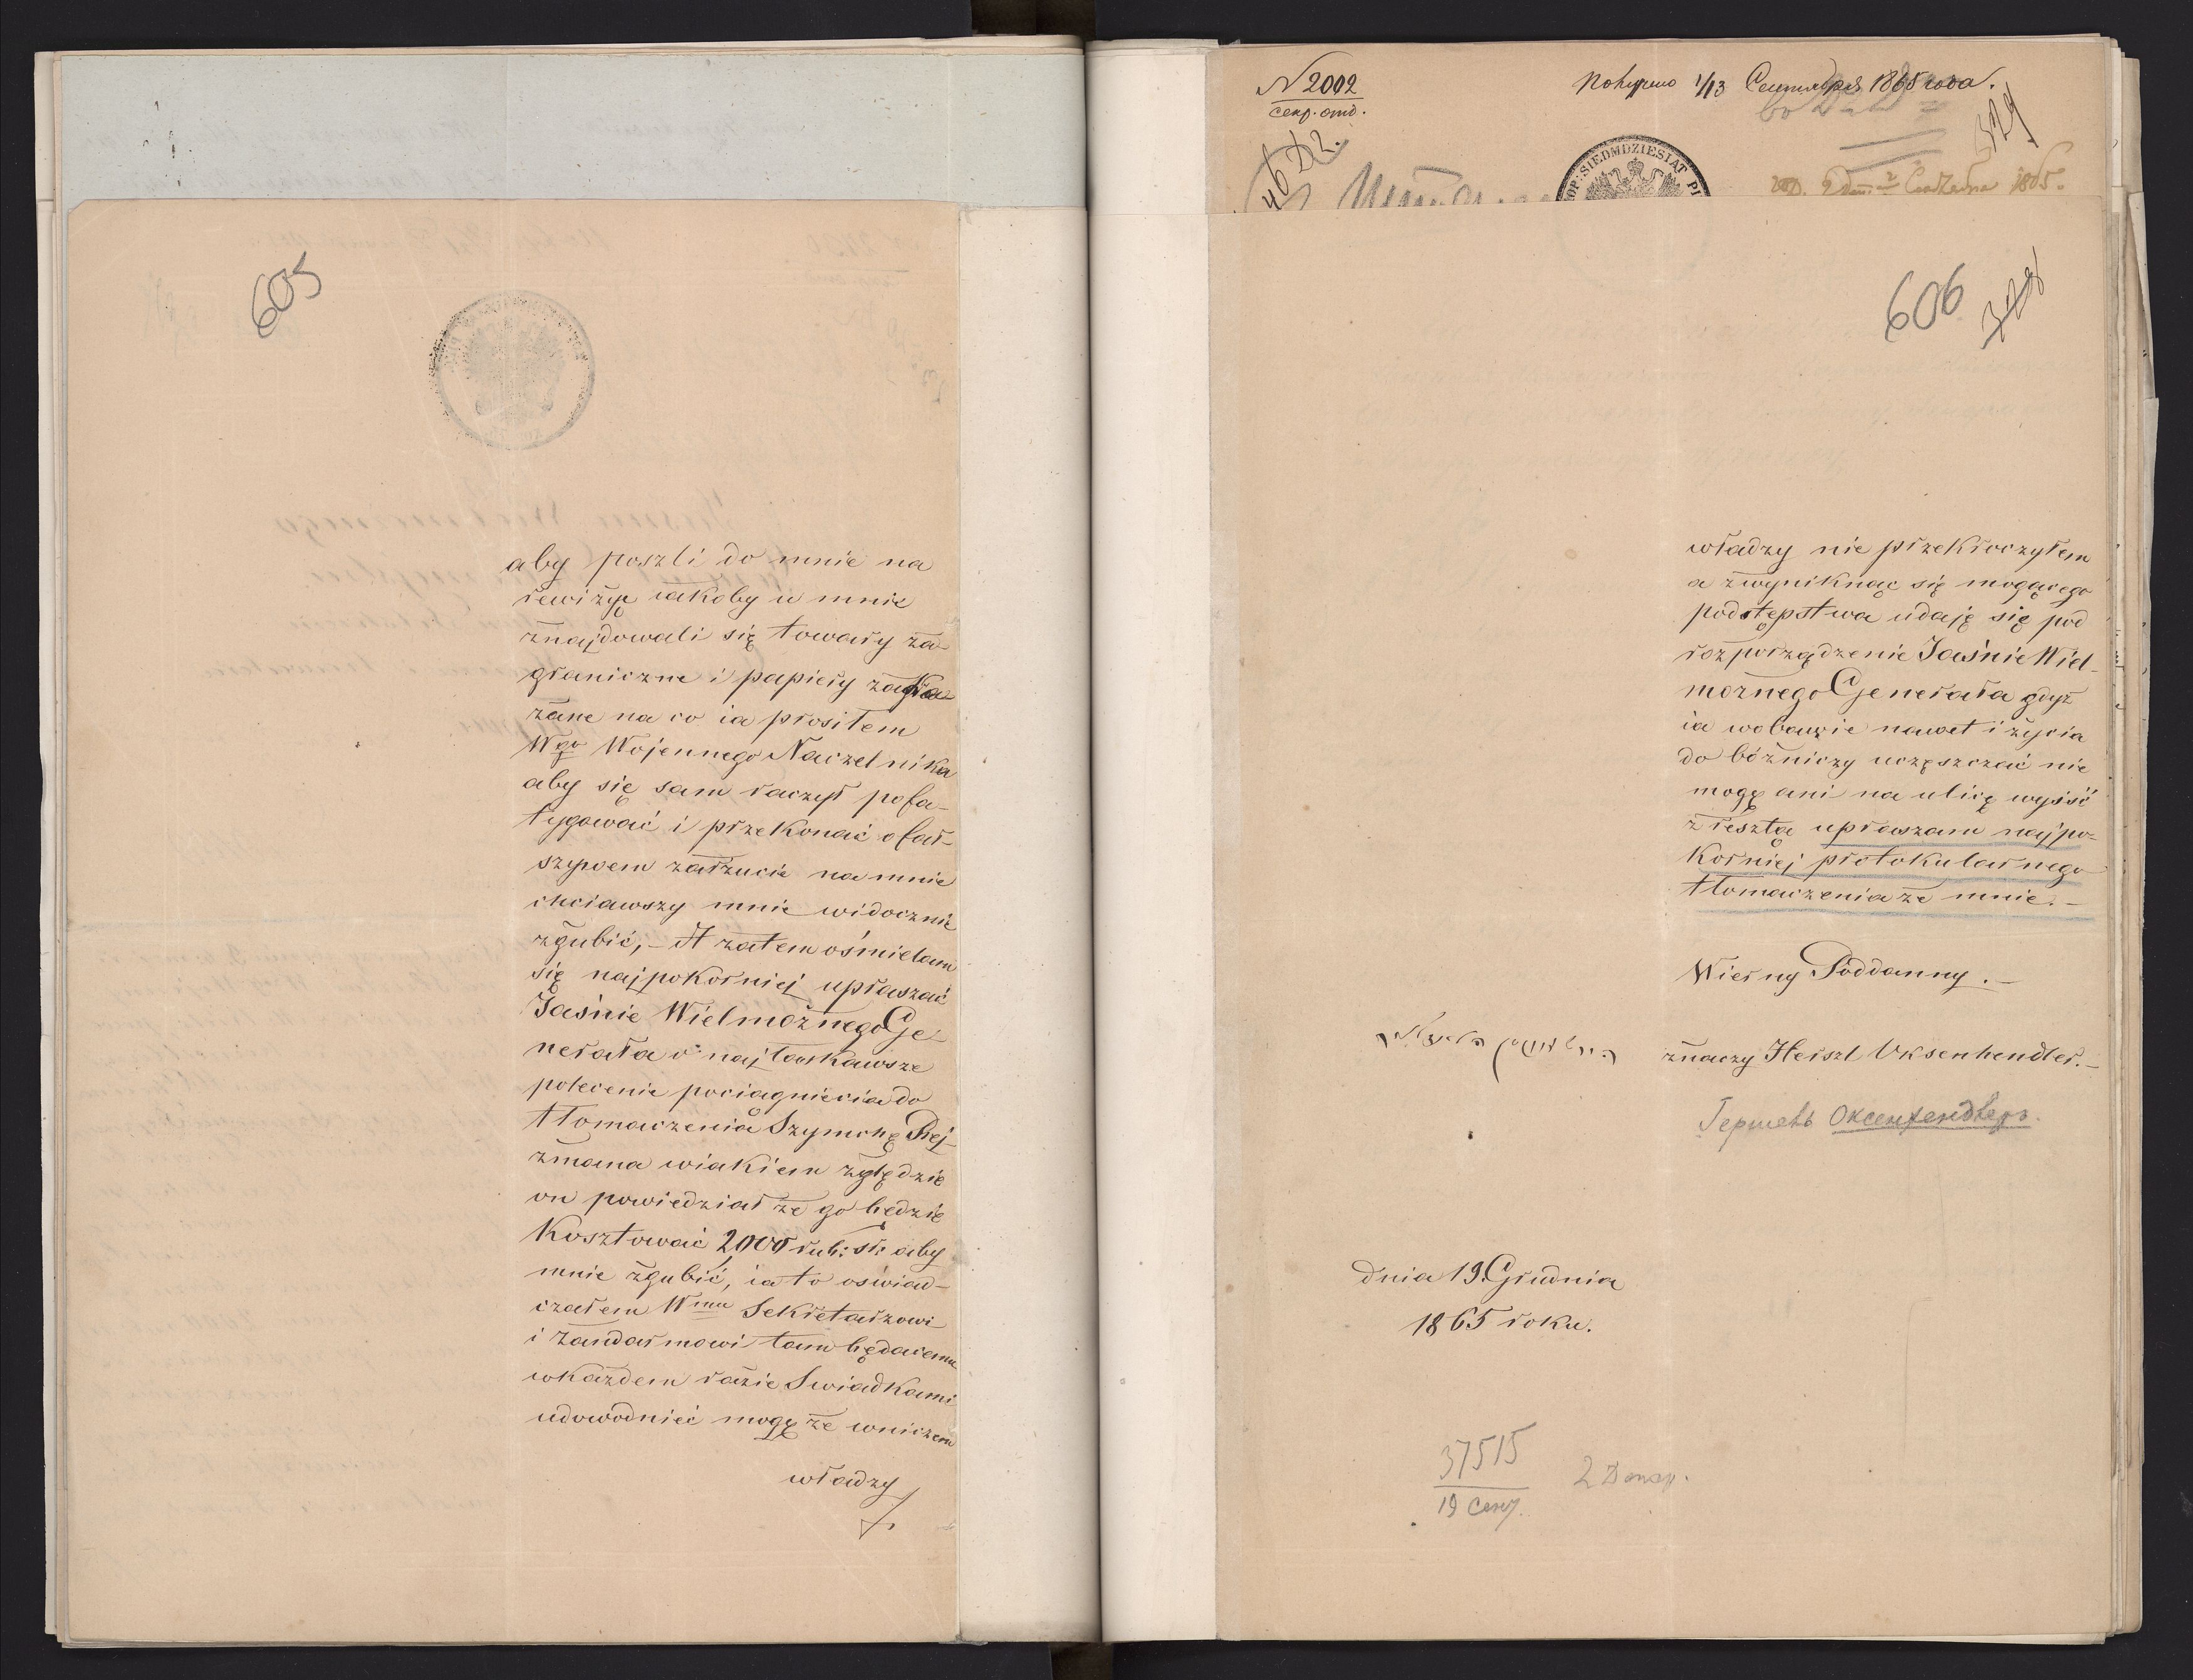 605
aby poszli do mnie na
rewizye iakoby u mnie
znajdowali się towary za-
graniczne i papiery zaka-
zane na co ia prosiłem
Wgo Wojennego Naczelnika
aby się sam raczył pofa-
tygować i przekonać o fał-
szywem zarzucie na mnie
chciawszy mnie widocznie
zgubić, – A zatem ośmielam
się najpokorniej upraszać
Jaśnie Wielmożnego Ge-
nerała o najłaskawsze
polecenie pociągniecia do
tłomaczenia Szymchę Prej-
zmana wiakiem zględzie
on powiedział że go będzie
kosztować 2000 rub: sr: aby
mnie zgubić, ia to oświad-
czałem Wmu Sekretarzowi
i Żandarmowi tam będącemu
wkażdem razie Swiadkami
udowodnieć mogę że wniczem
władzy
N 2002
секр. отд.
Получено 1/13 Сентября 1865 года.
46 D2.
329
OP: SIEDMDZIESIĄT PI
606
328
władzy nie przekroczyłem
a zwyniknąc się mogącego
podstępstwa udaję się pod
rozporządzenie Jaśnie Wiel-
możnego Generała gdyż
ia wobawie nawet i życia
do bóżniczy uczęszczać nie
mogę ani na ulicę wyjść
zresztą upraszam najpo-
korniej protokularnego
tłomaczenia ze mnie. –
Wierny Poddanny. –
znaczy Herszl Uksenhendler. –
Гершель Оксенхендлеръ.
dnia 19. Grudnia
1865 roku.
37515
19 Сен.